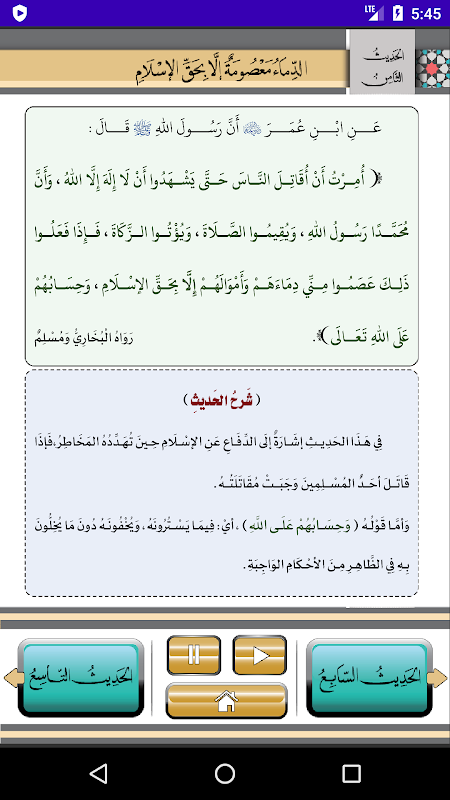 LTE 5:45
الحَدِيثُ
الثَّامِنُ
الدِّمَاءُ مَعْصُومَةٌ إِلَّا بِحَقِّ الإِسْلَامِ
عَـنِ ابْـنِ عُمَـرَ ﷺ أَنَّ رَسُـولَ اللهِ ﷺ قَـالَ :
﴿ أُمِـرْتُ أَنْ أُقَاتِـلَ النَّـاسَ حَتَّـى يَشْـهَدُوا أَنْ لَا إِلَهَ إِلَّا اللهُ ، وَأَنَّ
مُحَمَّـدًا رَسُـولُ اللهِ ، وَيُقِيمُـوا الصَّـلَاةَ ، وَيُؤْتُـوا الـزَّكَاةَ ، فَـإِذَا فَعَلُـوا
ذَلِـكَ عَصَمُـوا مِنِّـي دِمَاءَهَـمْ وَأَمْوَالَهُـمْ إِلَّا بِحَـقِّ الإِسْـلَامِ ، وَحِسَـابُهُمْ
عَلَـى اللهِ تَعَـالَـى ﴾. رَوَاهُ الْبُخَارِيُّ وَمُسْلِمٌ
( شَرحُ الحَديثِ )
فِي هَذَا الحَدِيثِ إِشَارَةٌ إِلَى الدِّفَاعِ عَنِ الإِسْلَامِ حِينَ تُهَدِّدُهُ المَخَاطِرُ،فَإِذَا
قَاتَلَ أَحَدٌ المُسْلِمِينَ وَجَبَتْ مُقَاتَلَتُهُ.
وَأَمَّا قَوْلُهُ ( وَحِسَابُهُمْ عَلَى اللَّهِ ) ، أَيْ: فِيمَا يَسْتُرُونَهُ، وَيُخْفُونَهُ دُونَ مَا يُخِلُّونَ
بِهِ فِي الظَّاهِرِ مِنَ الأَحْكَامِ الوَاجِبَةِ.
الحَدِيثُ السَّابِعُ
الحَدِيثُ التَّاسِعُ